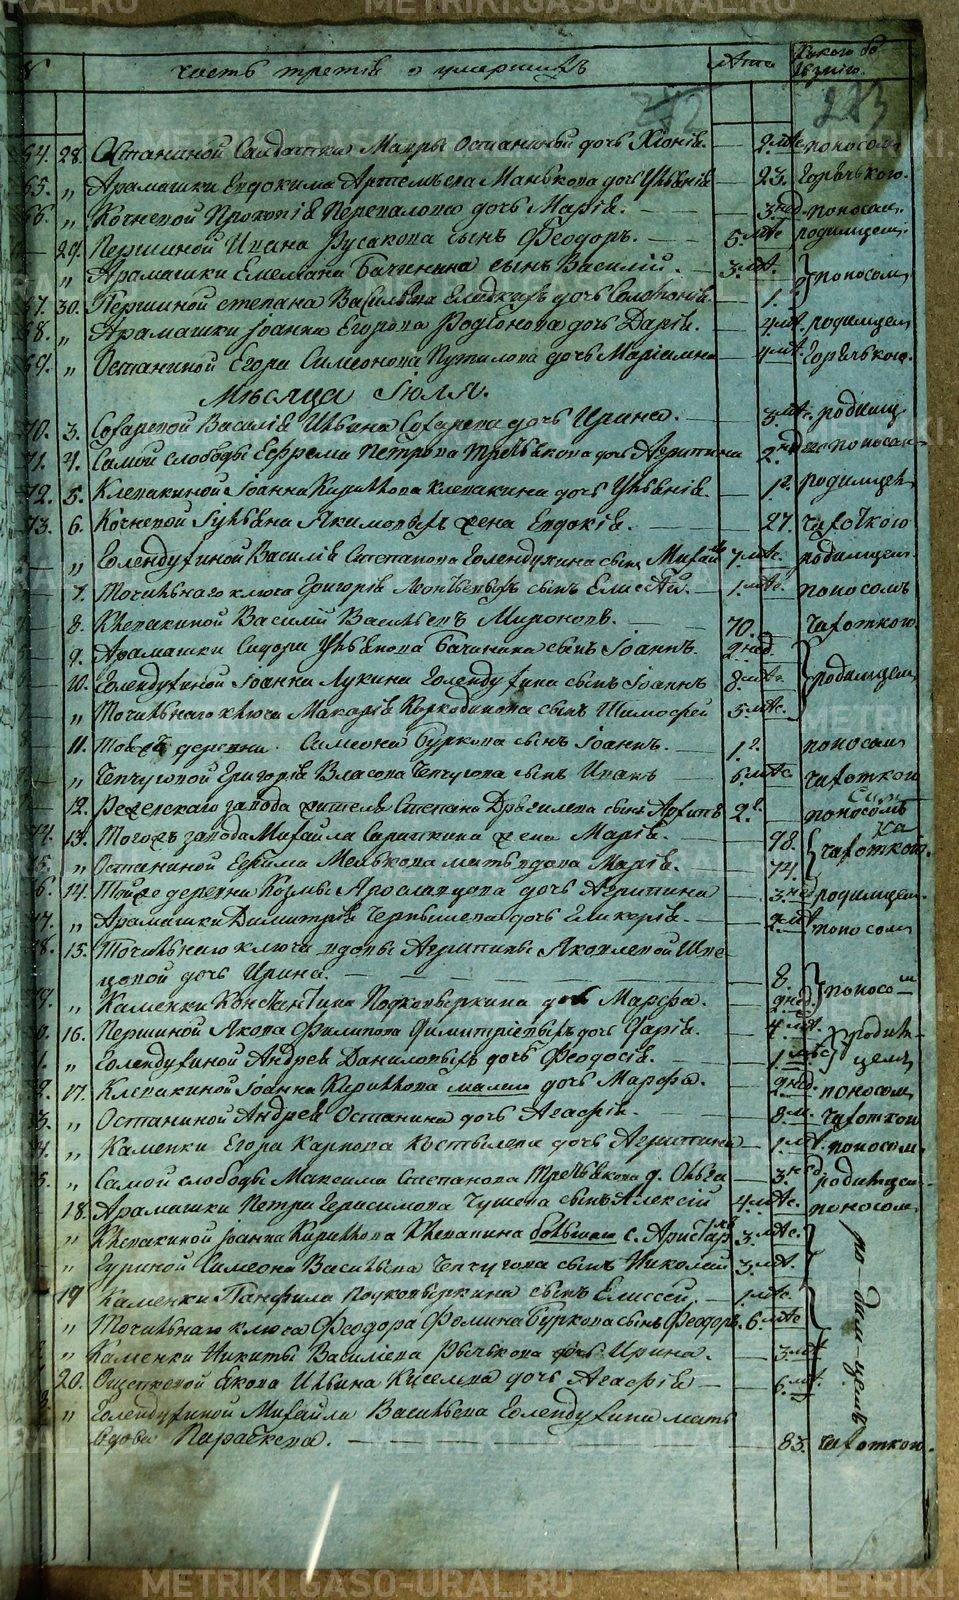 часть третія о умершихъ Лѣта Какого болѣзнію.
273
64. 28. Останиной Салдатки Мавры Останиной дочь Хіонія. 2. мѣс. поносомъ
65. „ Арамашки Евдокима Артемьева Манькова дочь Ульянія 23. Горячкою.
66. „ Кочневой Прокопія Перевалова дочь Марія. 3. нед. поносом.
29. Першиной Ивана Русакова сынъ Феодоръ. 5. мѣс. родимцем.
„ Арамашки Емельяна Бачинина сынъ Василій. 3. мѣс. поносом
67. 30. Першиной степана Васильева Гладкихъ дочь Соломонія. 1.
68. „ Арамашки Іоанна Егорова Родіонова дочь Дарія. 4. мѣс. родимцем
69. „ Останиной Егора Симеонова Путилова дочь Маріамна 4 мѣс. Горячкою.
Мѣсяца Іюля.
70. 3. Сохаревой Василія Ильина Сохарева дочь Ирина. 3. мѣс. родимц
71. 4. Самой слободы Ефрема Петрова Третьякова дочь Агрипина 2. нед поносом
72. 5. Клевакиной Іоанна Кирилова Клевакина дочь Ульянія. 1. г. родимцем
73. 6. Кочневой Іуліана Акимовыхъ жена Евдокія. 27. чахоткою
„ Голендухиной Василія Степанова Голендухина сынъ Михаил 7. мѣс. родимцем
7. Точильнаго ключа Григорія Леонтьевыхъ сынъ Елисей. 1. мѣс. поносомъ
8. Клевакиной Василій Васильевъ Мироновъ. 70. чахоткою
9. Арамашки Сидора Ульянова Бачинина сынъ Іоаннъ. 2 нед. родимцем
10. Голендухиной Іоанна Лукина Голендухина сынъ Іоаннъ 8. мѣс
„ Точильнаго ключа Макарія Коркодинова сынъ Тимофей 5. мѣс.
11. Тоей же деревни Симеона Буркова сынъ Іоаннъ. 1 г. поносом
„ Чепчуговой Григорія Власова Чепчугова сынъ Иванъ 6 мѣс чахоткою
12. Режевскаго завода жителя Степана сынъ Архипъ 2 г. поносомъ
74. 13. Тогожъ завода Михайла Сариткина жена Марія. 78. чахоткою.
75. „ Останиной Ефима Мелькова мать вдова Марія. 74.
76. 14. Той же деревни Козмы Ярославцова дочь Агрипина 3. нед родимцем
77. „ Арамашки Димитрія Чернышева дочь Гликерія. 2 мѣс поносом
78. 15. Точильнаго ключа вдовы Агрипины Яковлевой Шве-
цовой дочь Ирина. 8. поносом
79. „ Каменки Константина Подковыркина дочь Марфа. 2 нед.
80. 16. Першиной Якова Филипова Димитріевыхъ дочь Дарія. 4 мѣс. родим-
81. „ Голендухиной Андрея Даниловыхъ дочь Феодосія. 1. мѣс цемъ
82. 17. Клевакиной Іоанна Кирилова малаго дочь Марфа. 2 нед. поносом
83. „ Останиной Андрея Останина дочь Агафія. 8 м. чахоткою
84. „ Каменки Егора Карпова Костылева дочь Агрипина 1 мѣс. поносом.
85. „ Самой слободы Максима Степанова Третьякова д. Ольга 3. нед. родимцем
18. Арамашки Петра Герасимова Чушева сынъ Алексій 4. мѣс. поносом.
„ Клевакиной Іоанна Кирилова Клевакина большаго с. Аристархъ 3. мѣс. ро-дим-цемъ
„ Гуриной Симеона Васильева Чепчугова сынъ Николай 3 мѣс.
19 Каменки Панфила Подковыркина сынъ Елиссей. 1. мѣс.
„ Точильнаго ключа Феодора Фомина Буркова сынъ Феодоръ. 6 мѣс
„ Каменки Никиты Василіева Рычкова дочь Ирина. 3 мѣс
20. Ощепковой Якова Ильина Киселева дочь Агафія 6. мѣс.
„ Голендухиной Михайла Васильева Голендухина мать
вдова Параскева. 83. чахоткою.
METRIKI.GASO-URAL.RU